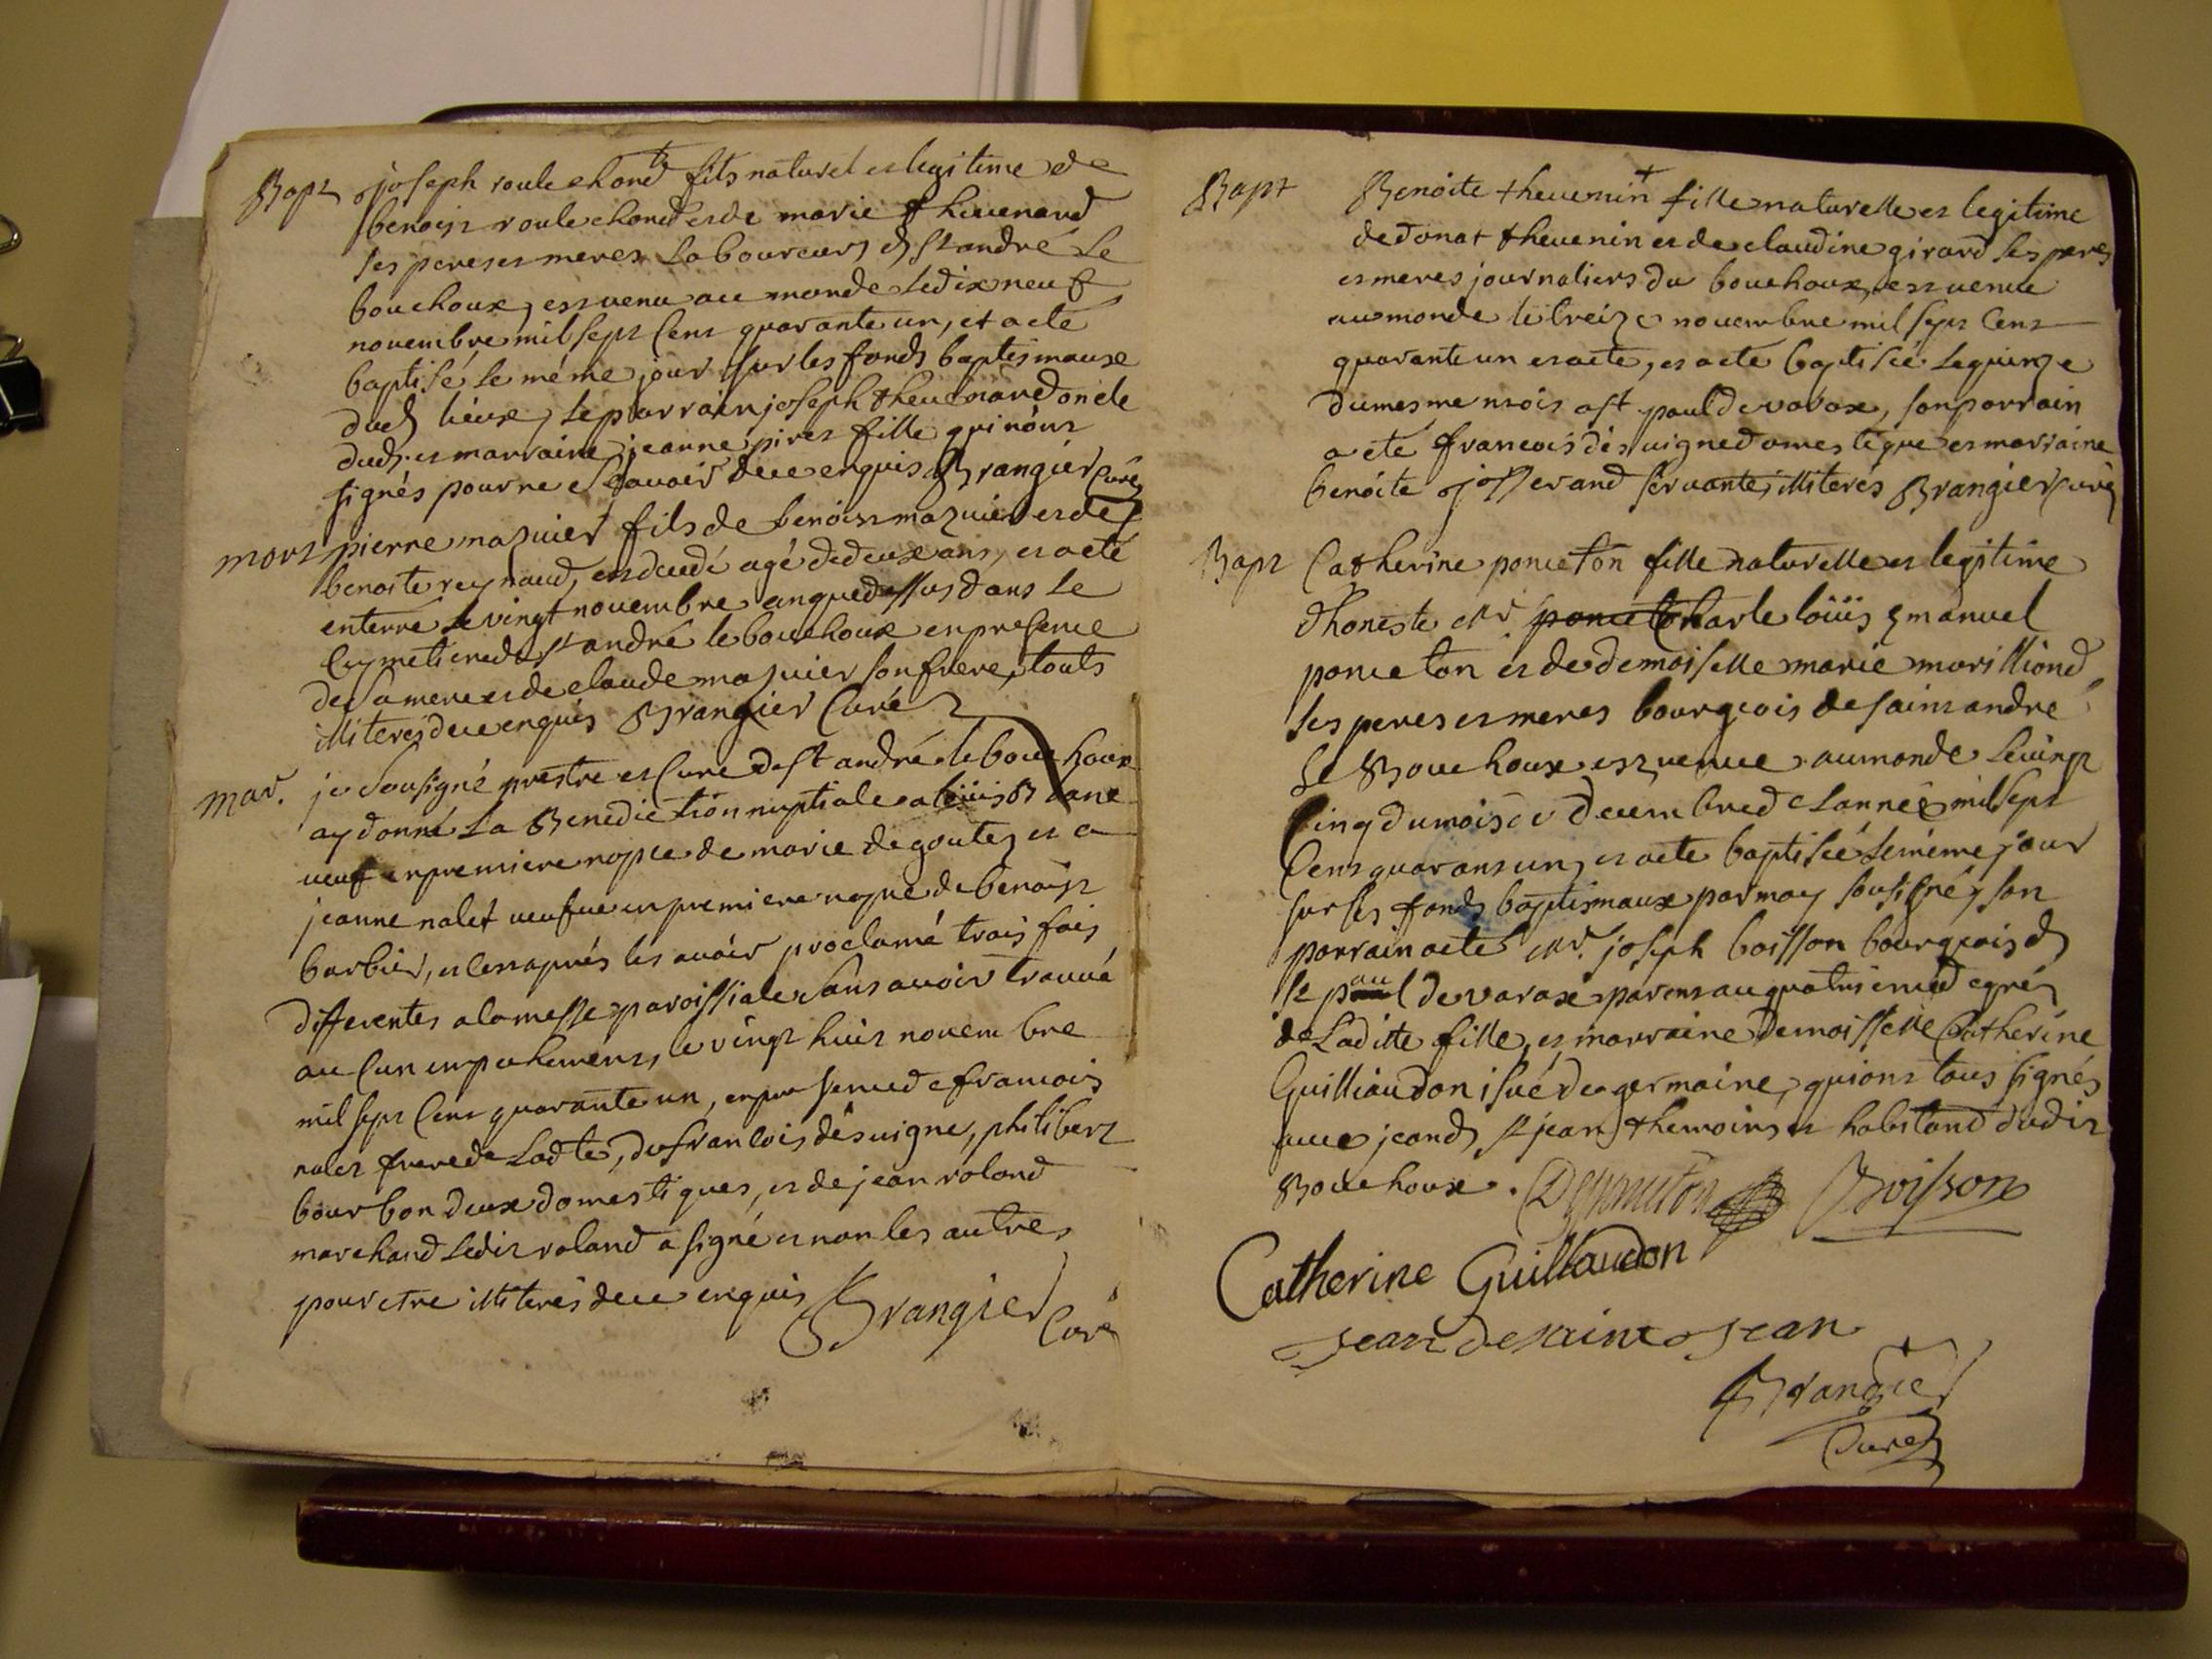 Bapt joseph roulechond fils naturel et legitime de
benoist roulechond et de marie thevenand
ses peres et meres laboureurs d St andré le
bouchoux, est venu au monde le dix neuf
novembre mil sept cent quarante un, et a eté
baptisé le méme jour sur les fonds baptismaux
dud lieux, le parrain joseph thevenand oncle
dud. et marraine jeanne piret fille qui n'ont
signés pour ne scavoir de ce enquis Brangier Curé
mort pierre mazuier fils de benoist mazuier et de
benoite reynaud, est decedé agé de deux ans, et a eté
enterré le vingt novembre an que dessus dans le
Cymetiere de St andré le bouchoux en presence
de sa mere et de claude mazuier son frere, touts
illiterés de ce enquis Brangier Curé
mar. je sousigné prestre et Curé de St andré le bouchoux
ay donné la Benediction nuptiale a loüis Blanc
veuf en premiere nopce de marie degoutes et a
jeanne nalet veufve en premiere nopce de benoist
barbier, et ce apres les avoir proclamé trois fois
differentes a la messe paroissiale sans avoir trouvé
aucun empechement, le vingt huit novembre
mil sept Cent quarante un, en presence de francois
nalet frere de Ladte, de francois désvigne, philibert
bourbon deux domestiques, et de jean roland
marchand ledit roland a signé et non les autres
pour etre illiterés de ce enquis Brangier Curé
Bapt Benoite thevenin fille naturelle et legitime
de donat thevenin et de claudine girard ses peres
et meres journaliers du bouchoux, est venue
au monde le treize novembre mil sept Cent
quarante un et a eté, et a eté baptisée le quinze
du mesme mois a st paul de varax, son parrain
a eté francois désvigne domestique et marraine
benoite josserand servante, illiterés Brangier Curé
Bapt Catherine ponceton fille naturelle et legitime
d'honeste Mr poncet Charle loüis Emanuel
ponceton et de demoiselle marie morilliond
ses peres et meres bourgeois de saint andré
le Bouchoux est venue au monde le vingt
Cinq du mois de decembre de l'année mil sept
Cent quarant un, et a eté baptisée le méme jour
sur les fonds baptismaux par moy sousigné, son
parrain a eté Mr. joseph boisson bourgeois d
St paul de varax parens au quatriéme degré
de Laditte fille, et marraine demoisselle Catherine
Guilliaudon isué de germaine, qui ont tous signés
avec jean d St jean themoins et habitand dudit
Bouchoux. Deponceton Boisson
Catherine Guillaudon
Jean de saint Jean
Brangier
Curé